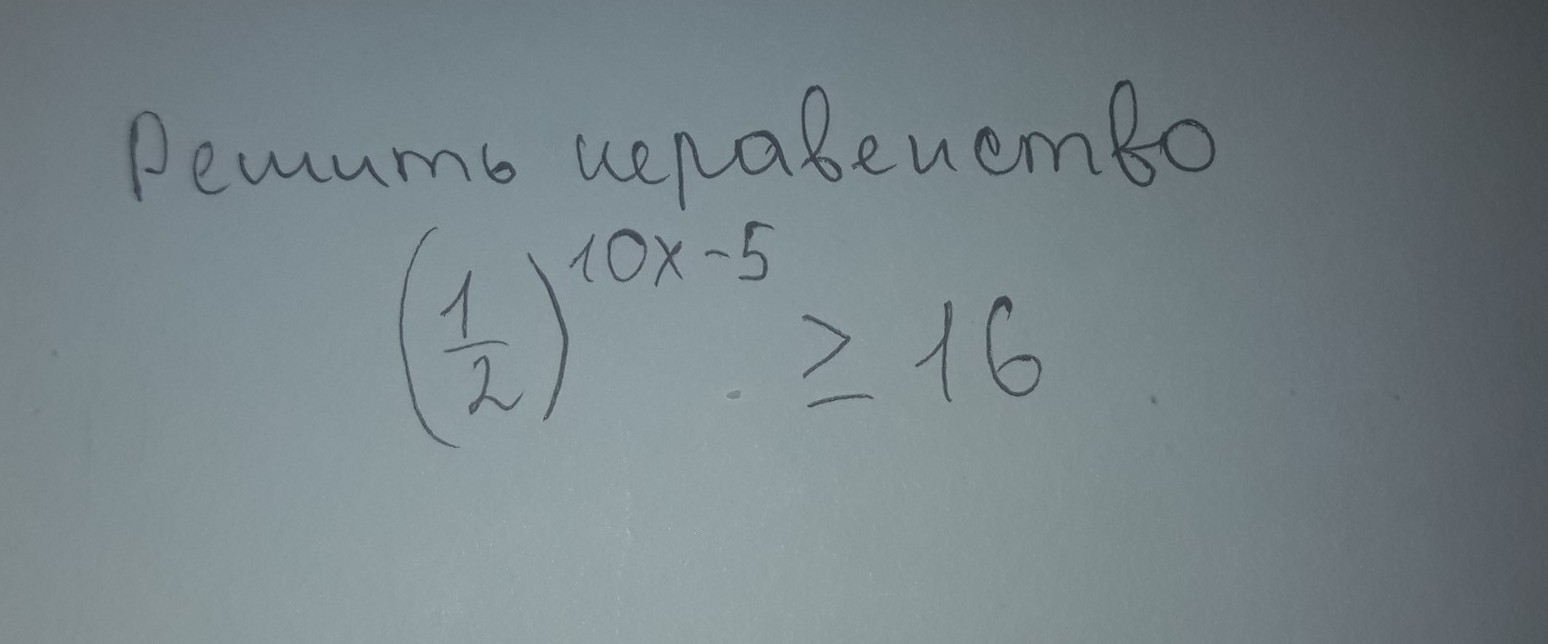 Решить неравенство
(1/2)^(10x-5) ≥ 16